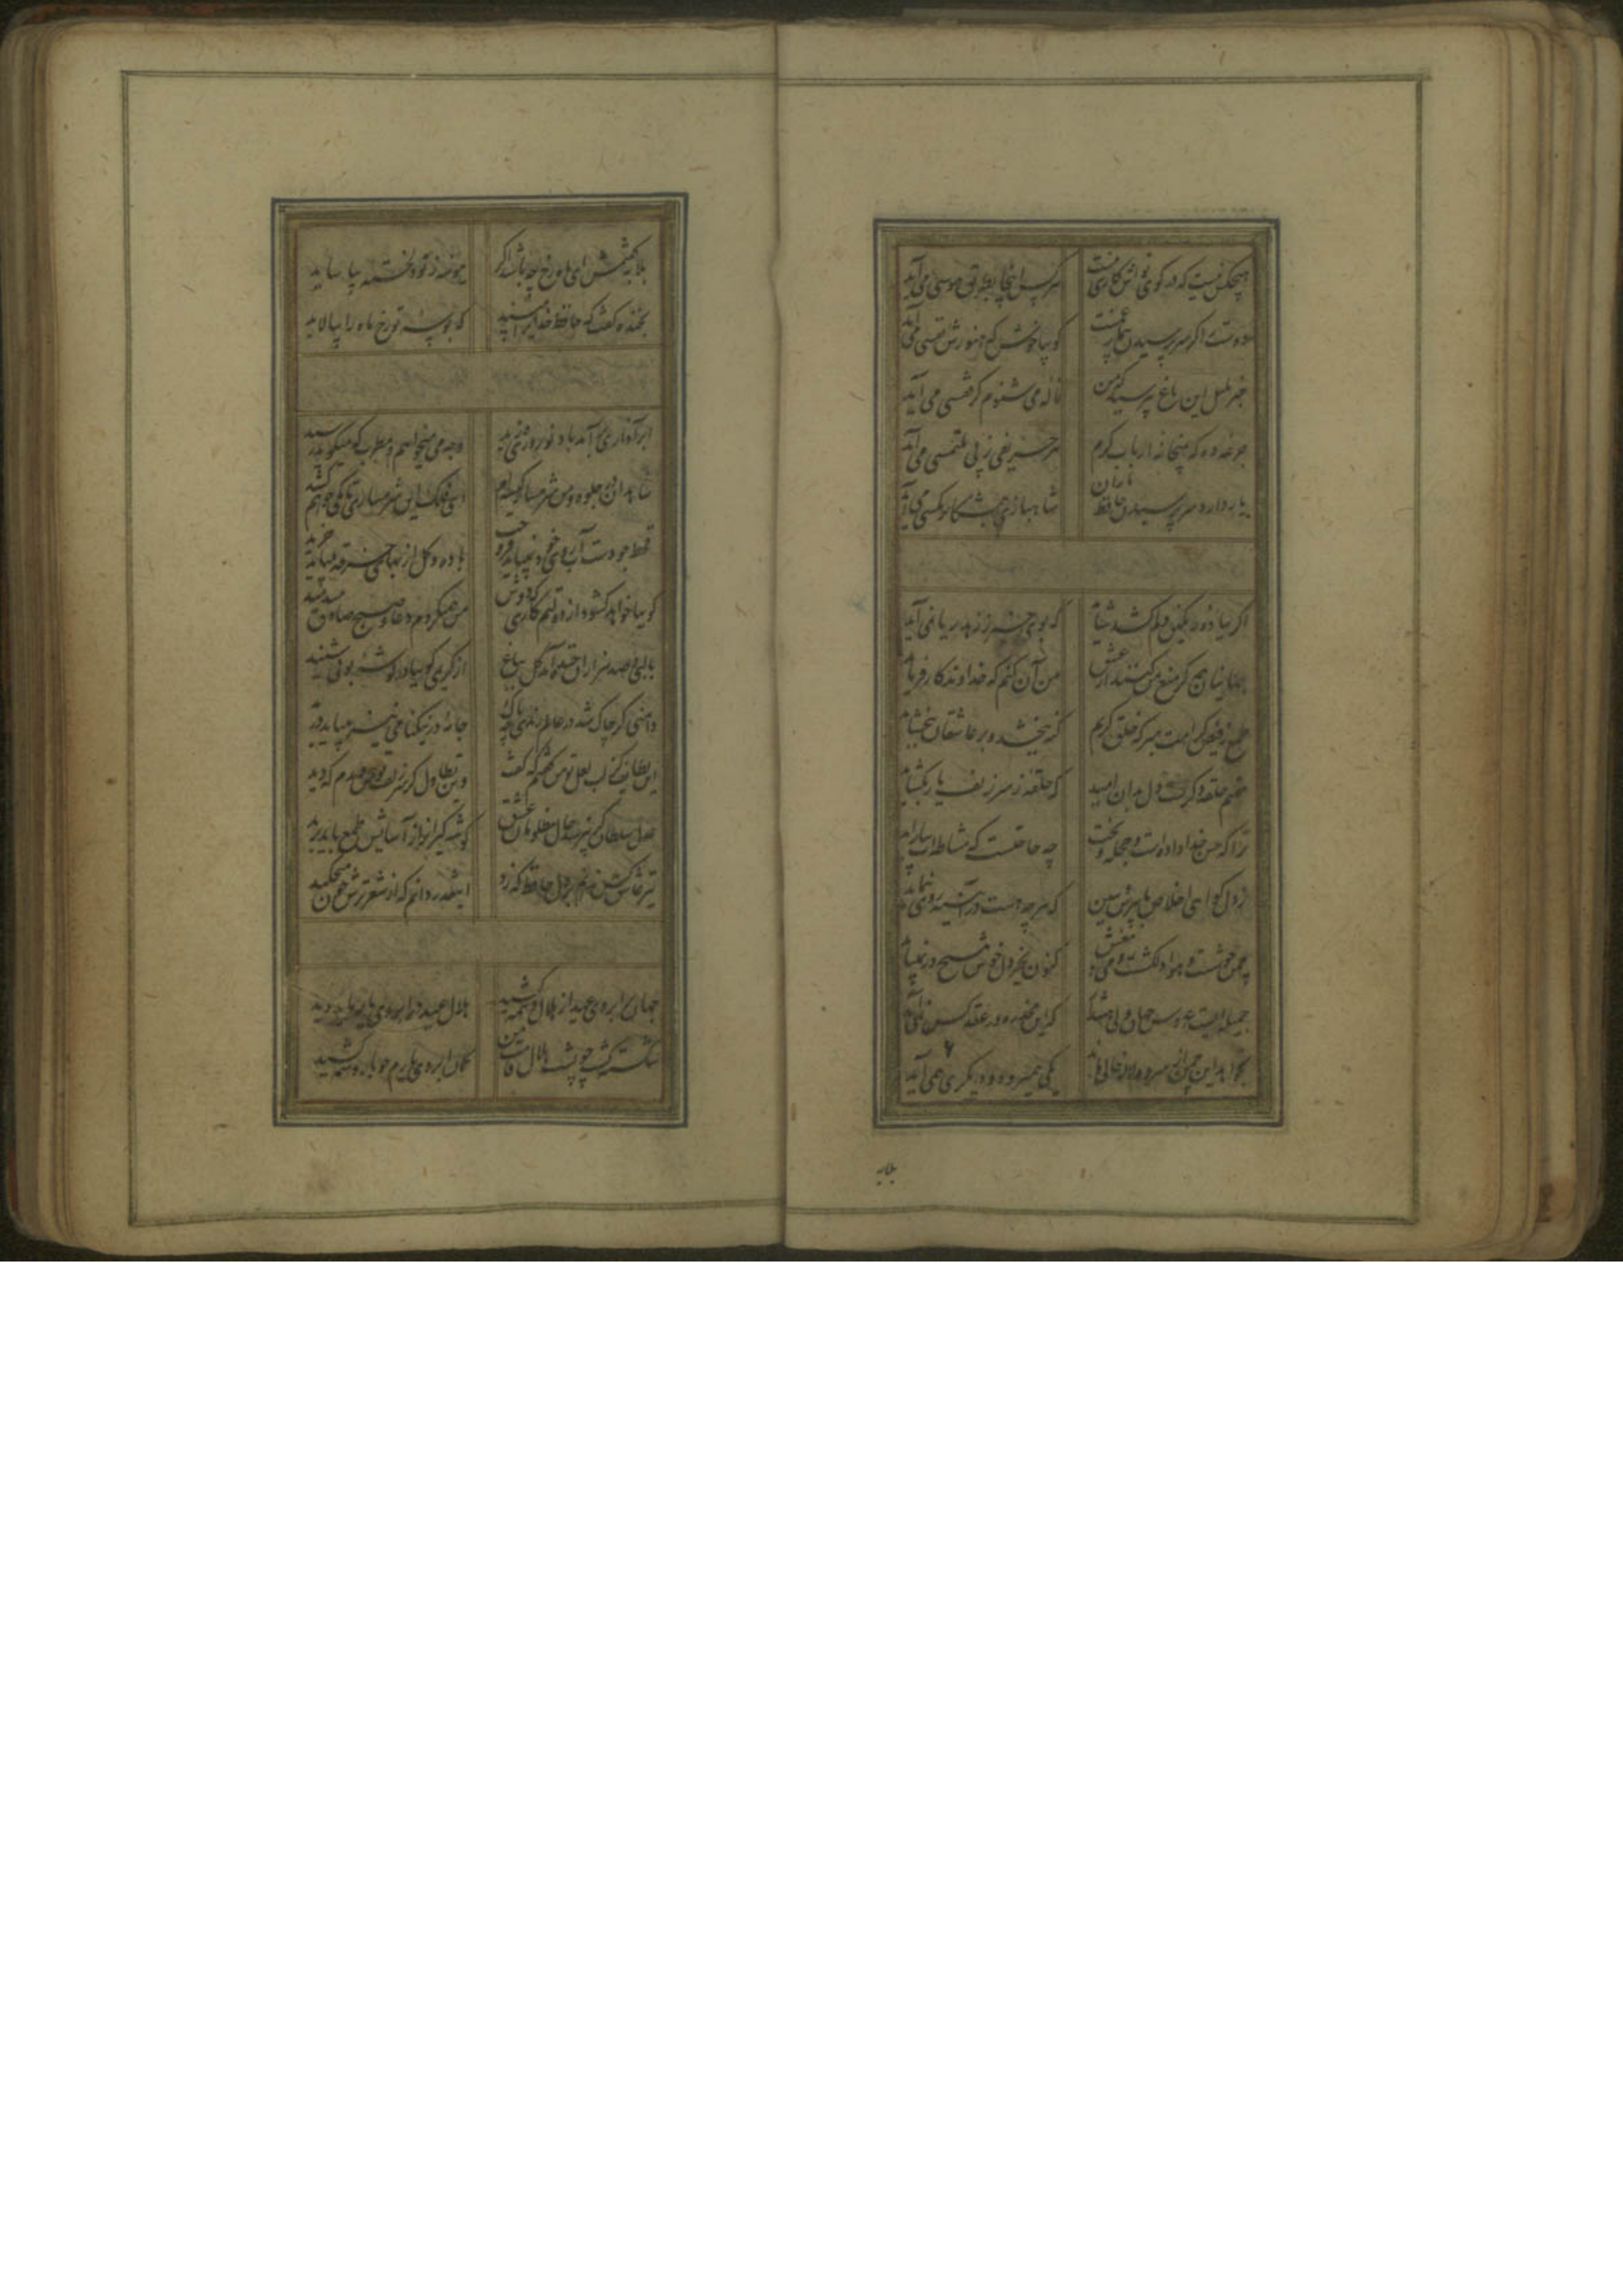 هیچکس نیست که در کوی تواش کاری نیست هر کس اینجا بطریق هوسی می آید
دوست را گر سر پرسیدن بیمار غمست گو بیا خوش که هنوزش نفسی می آید
خبر بلبل این باغ بپرسید که من ناله می شنوم کز قفسی می آید
جرعه ده که بمیخانه ارباب کرم هر حریفی ز پی ملتمسی می آید
یار دارد سر پرسیدن حافظ یاران شاهبازی بشکار مگسی می آید
اگر بباده مشکین دلم کشد شاید که بوی خیر ز زهد ریا نمی آید
جهانیان همه گر منع من کنند از عشق من آن کنم که خداوندگار فرماید
طمع ز فیض کرامت مبر که خلق کریم گنه ببخشد و بر عاشقان ببخشاید
مقیم حلقه ذکرست دل بدان امید که حلقه ز سر زلف یار بگشاید
ترا که حسن خداداده است و حجله بخت چه حاجتست که مشاطه ات بیاراید
از دل گواهی اخلاص ما بپرس ببین که هر چه هست در آینه روی بنماید
چمن خوشست و هوا دلکشت و می بیغش کنون بجز دل خوش هیچ در نمی باید
جمیله ایست عروس جهان ولی هشدار که این مخدره در عقد کس نمی آید
نخواهد این چمن از سرو و لاله خالی ماند یکی همیرود و دیگری همی آید
بلابه
بلابه گفتمش ای ماه رخ چه باشد اگر بیک شکر ز تو دلخسته بیاساید
بخنده گفت که حافظ خدایرا مپسند که بوسه تو رخ ماه را بیالاید
ابر آذاری برآمد باد نوروزی وزید وجه می میخواهم و مطرب که میگوید رسید
شاهدان در جلوه و من شرمسار کیسه ام ای فلک این شرمساری تا بکی خواهم کشید
قحط جودست آب روی خود نمی باید فروخت باده و گل از بهای خرقه میباید خرید
گوییا خواهد گشود از دولتم کاری که دوش من همیکردم دعا و صبح صادق میدمید
با لبی و صد هزاران خنده آمد گل بباغ از کریمی گوییا در گوشه بویی شنید
دامنی گر چاک شد در عالم رندی چه باک جامه در نیکنامی نیز میباید درید
این لطایف کز لب لعل تو من گفتم که گفت وین تطاول کز سر زلف تو من دیدم که دید
عدل سلطان گر نپرسد حال مظلومان عشق گوشه گیرانرا ز آسایش طمع باید برید
تیر عاشق کش ندانم بر دل حافظ که زد اینقدر دانم که از شعر ترش خون میچکید
جهان بر ابروی عید از هلال وسمه کشید هلال عید در ابروی یار باید دید
شکسته گشت چو پشت هلال قامت من کمان ابروی یارم چو باز وسمه کشید